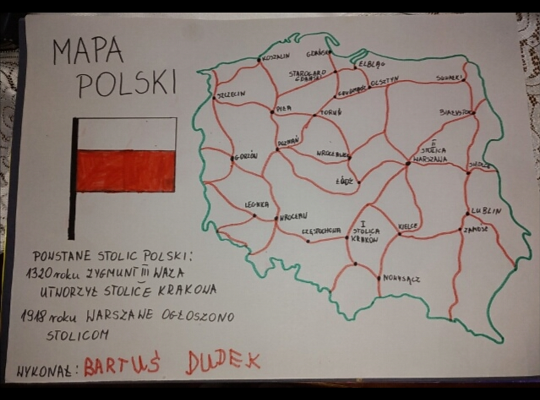 MAPA
POLSKI
POWSTANE STOLIC POLSKI:
1320 roku ZYGMUNT III WAZA
UTWORZYŁ STOLICE KRAKOWA
1918 roku WARSZAWE OGŁOSZONO
STOLICOM
WYKONAŁ: BARTUŚ DUDEK
KOSZALIN
GDAŃSK
ELBLĄG
STAROGARD
GDAŃSKI
OLSZTYN
SUWAŁKI
SZCZECIN
GRUDZIĄDZ
PIŁA
TORUŃ
BIAŁYSTOK
POZNAŃ
GORZÓW
WROCŁAWEK
II
STOLICA
WARSZAWA
ŁÓDŹ
SIEDLCE
LEGNICA
WROCŁAW
CZĘSTOCHOWA
I
STOLICA
KRAKÓW
KIELCE
LUBLIN
ZAMOŚĆ
NOWYSĄCZ